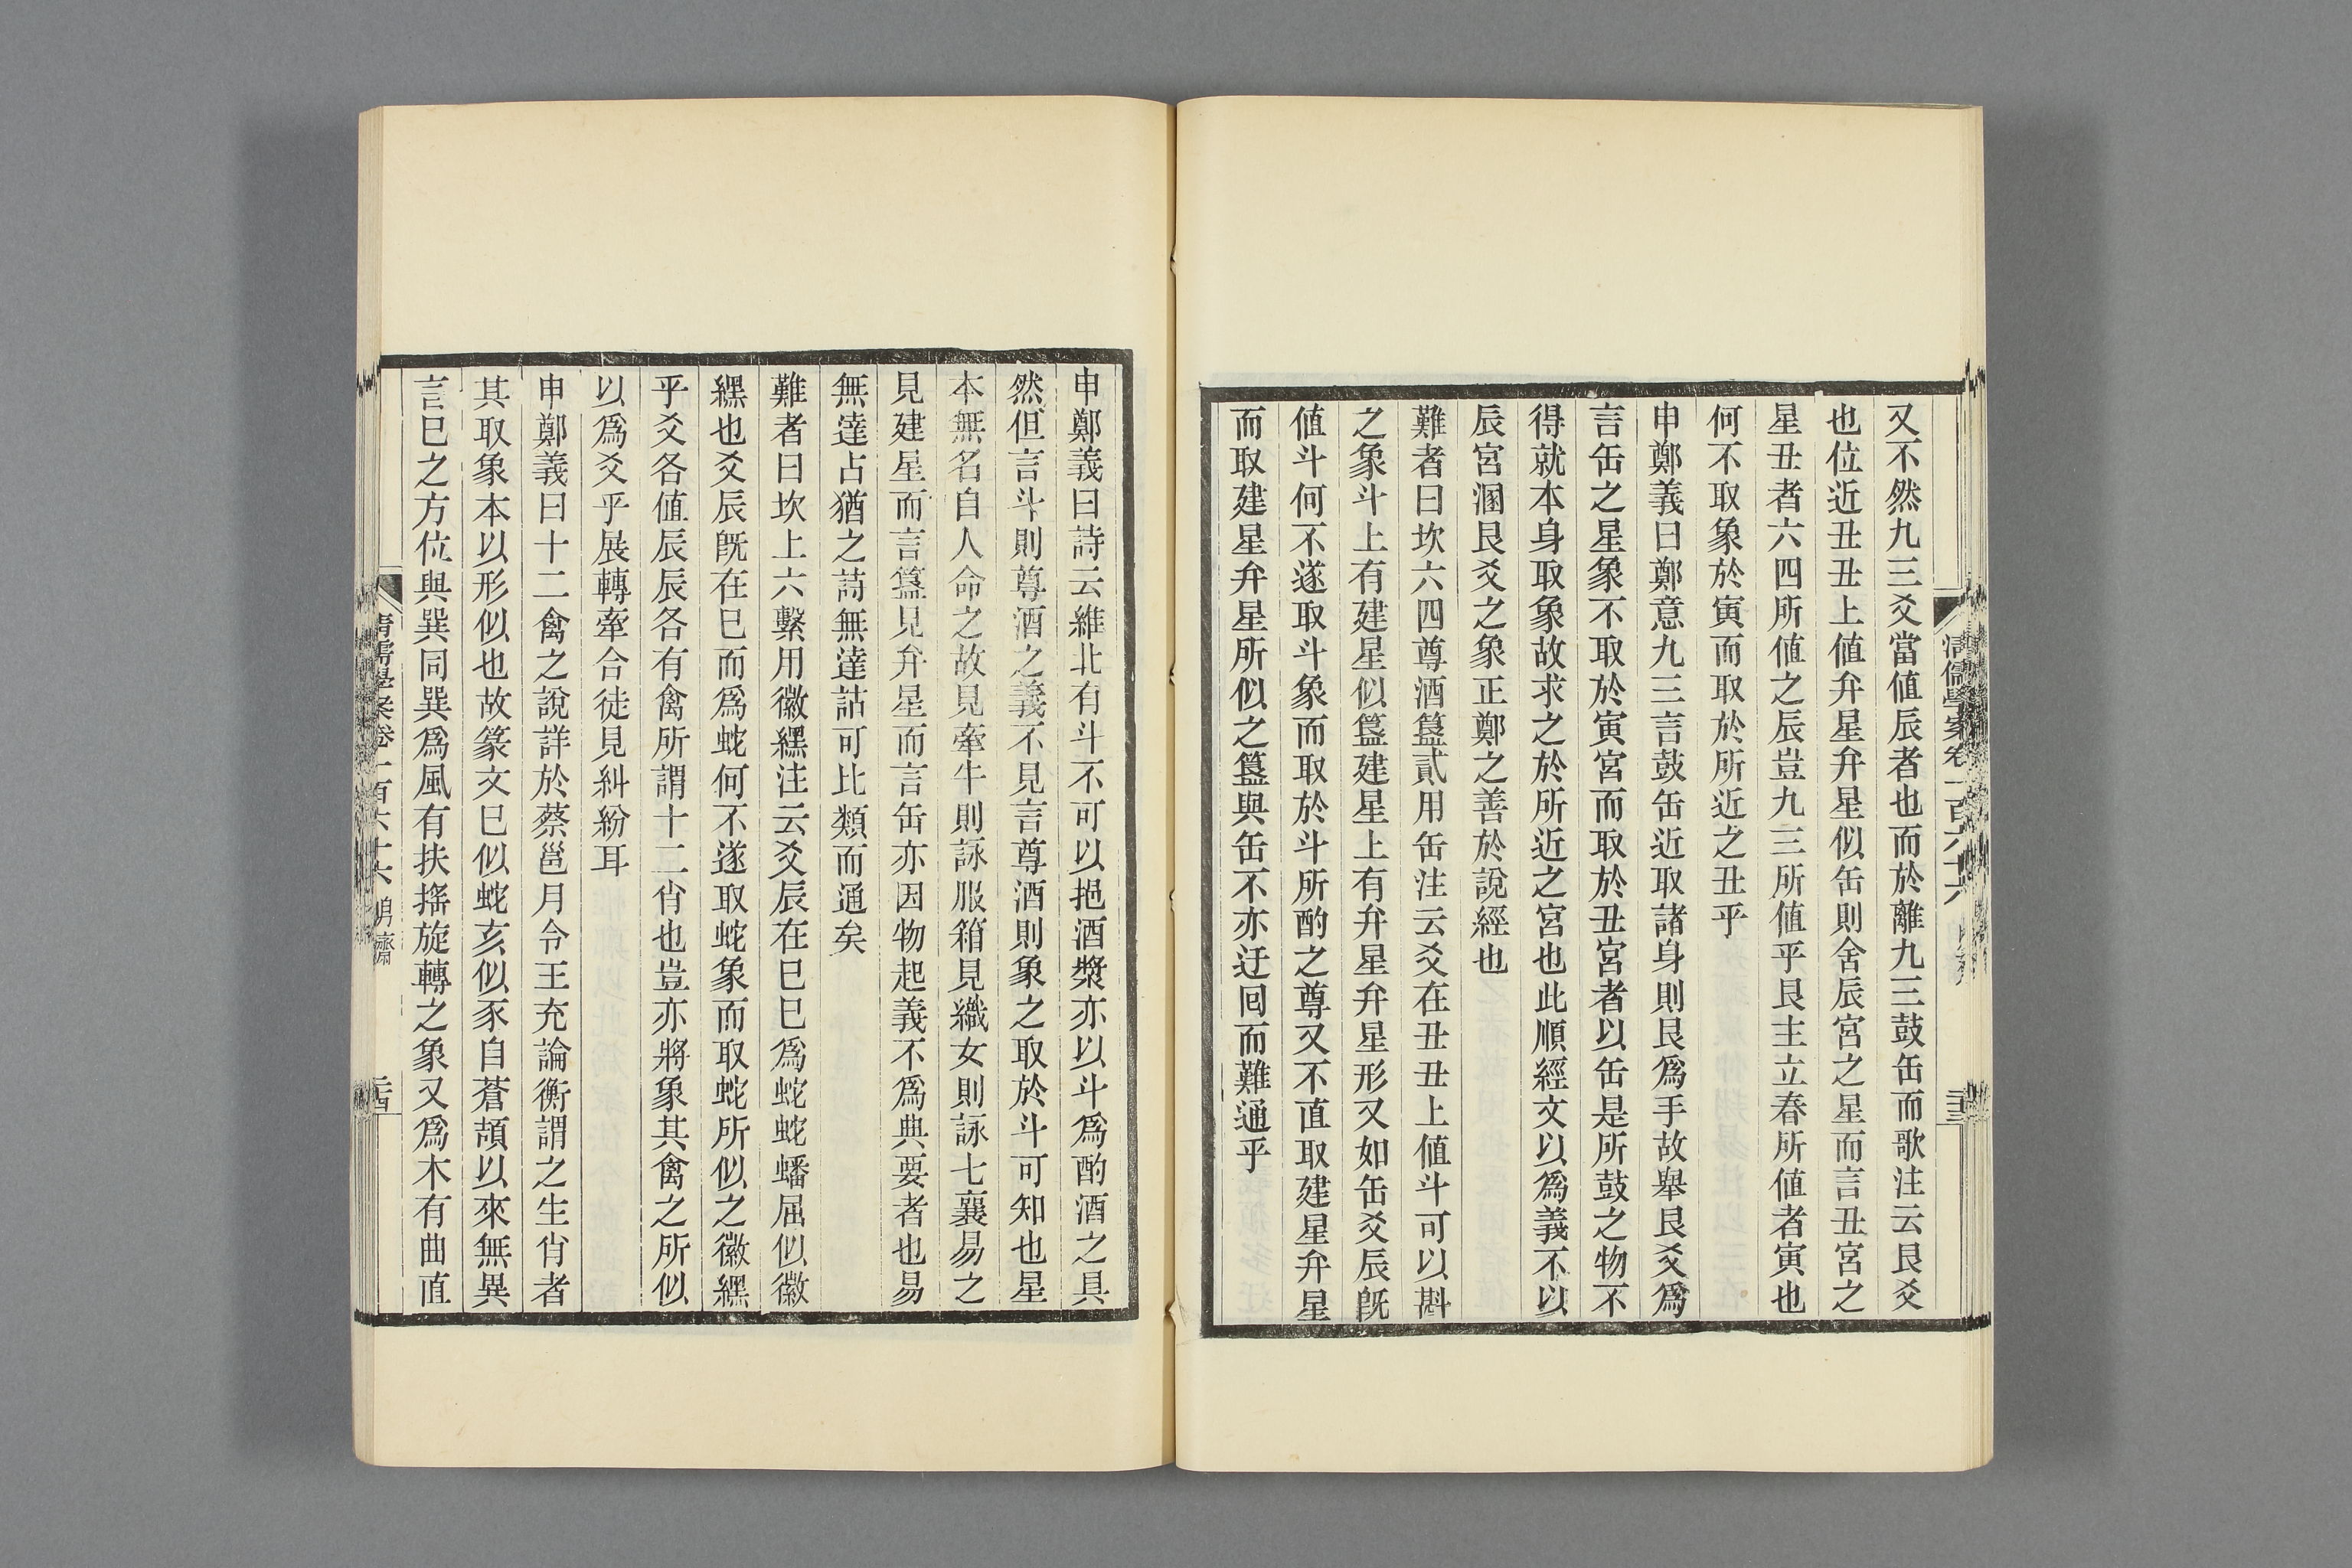 又不然九三爻當值辰者也而於離九三鼓缶而歌注云艮爻
也位近丑丑上值弁星弁星似缶則舍辰宮之星而言丑宮之
星丑者六四所值之辰豈九三所值乎艮主立春所值者寅也
何不取象於寅而取於所近之丑乎
申鄭義曰鄭意九三言鼓缶近取諸身則艮爲手故舉艮爻爲
言缶之星象不取於寅宮而取於丑宮者以缶是所鼓之物不
得就本身取象故求之於所近之宮也此順經文以爲義不以
辰宮溷艮爻之象正鄭之善於說經也
難者曰坎六四尊酒簋貳用缶注云爻在丑丑上值斗可以斟
之象斗上有建星似簋建星上有弁星弁星形又如缶爻辰旣
值斗何不遂取斗象而取於斗所酌之尊又不直取建星弁星
而取建星弁星所似之簋與缶不亦迂囘而難通乎
清儒學案卷一百六十六
二十三
申鄭義曰詩云維北有斗不可以挹酒漿亦以斗爲酌酒之具
然但言斗則尊酒之義不見言尊酒則象之取於斗可知也星
本無名自人命之故見牽牛則詠服箱見織女則詠七襄易之
見建星而言簋見弁星而言缶亦因物起義不爲典要者也易
無達占猶之詩無達詁可比類而通矣
難者曰坎上六繫用徽纆注云爻辰在巳巳爲蛇蛇蟠屈似徽
纆也爻辰旣在巳而爲蛇何不遂取蛇象而取蛇所似之徽纆
乎爻各值辰辰各有禽所謂十二肖也豈亦將象其禽之所似
以爲爻乎展轉牽合徒見糾紛耳
申鄭義曰十二禽之說詳於蔡邕月令王充論衡謂之生肖者
其取象本以形似也故篆文巳似蛇亥似豕自蒼頡以來無異
言巳之方位與巽同巽爲風有扶搖旋轉之象又爲木有曲直
清儒學案卷一百六十六 明齋
二十四